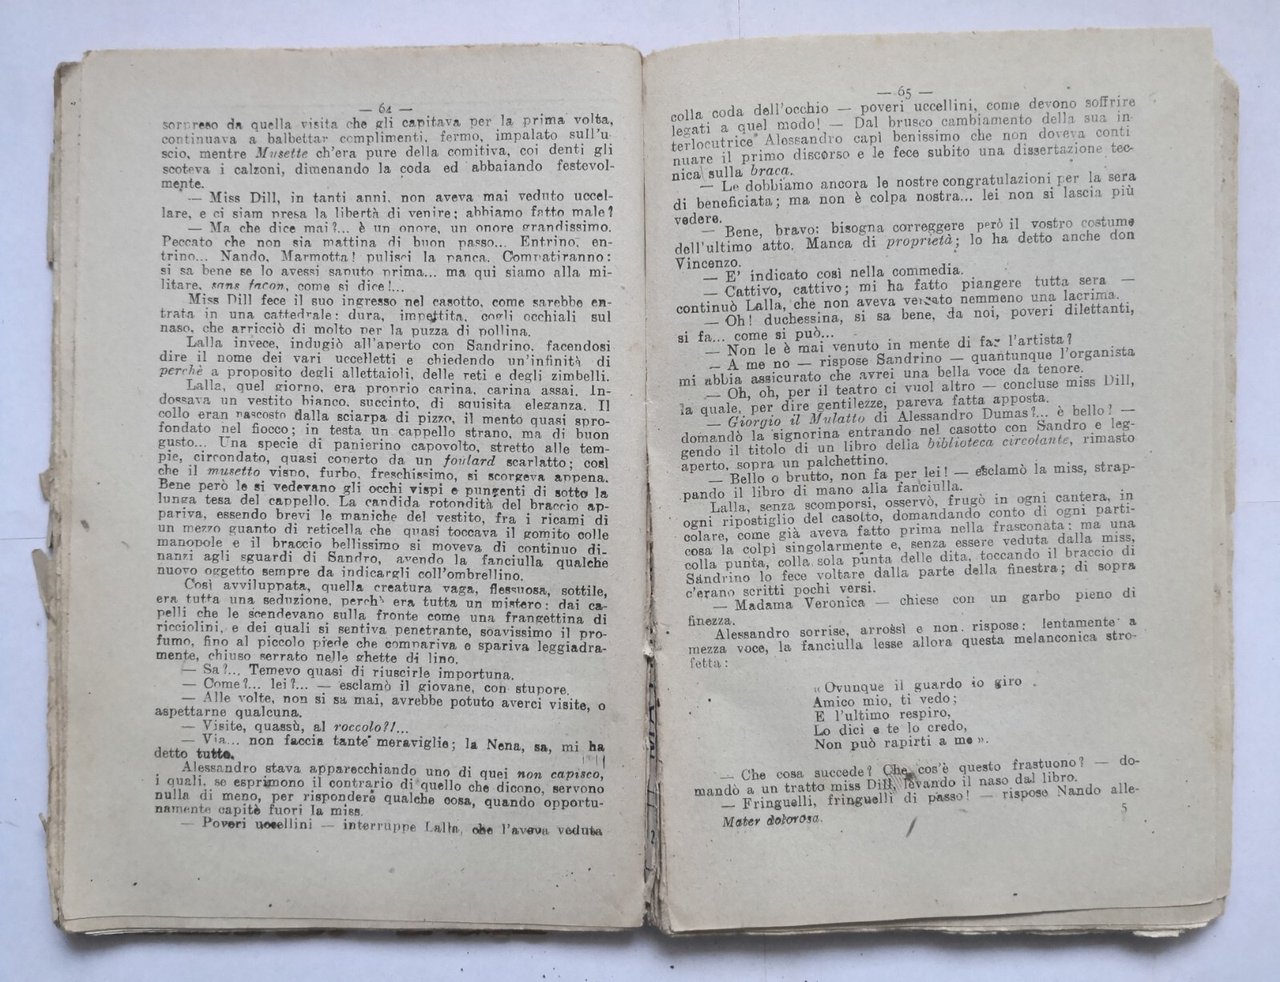 — 64 —
sorpreso da quella visita che gli capitava per la prima volta,
continuava a balbettar complimenti, fermo, impalato sull'u-
scio, mentre Musette ch'era pure della comitiva, coi denti gli
scoteva i calzoni, dimenando la coda ed abbaiando festevol-
mente.
— Miss Dill, in tanti anni, non aveva mai veduto uccel-
lare, e ci siam presa la libertà di venire; abbiamo fatto male?
— Ma che dice mai?... è un onore, un onore grandissimo.
Peccato che non sia mattina di buon passo... Entrino, en-
trino... Nando, Marmotta! pulisci la panca. Compatiranno:
si sa bene se lo avessi saputo prima... ma qui siamo alla mi-
litare, sans façon, come si dice!...
Miss Dill fece il suo ingresso nel casotto, come sarebbe en-
trata in una cattedrale: dura, impettita, cogli occhiali sul
naso, che arricciò di molto per la puzza di pollina.
Lalla invece, indugiò all'aperto con Sandrino, facendosi
dire il nome dei vari uccelletti e chiedendo un'infinità di
perchè a proposito degli allettaioli, delle reti e degli zimbelli.
Lalla, quel giorno, era proprio carina, carina assai. In-
dossava un vestito bianco, succinto, di squisita eleganza. Il
collo eran nascosto dalla sciarpa di pizzo, il mento quasi spro-
fondato nel fiocco; in testa un cappello strano, ma di buon
gusto... Una specie di panierino capovolto, stretto alle tem-
pie, circondato, quasi coperto da un foulard scarlatto; così
che il musetto vispo, furbo, freschissimo, si scorgeva appena.
Bene però le si vedevano gli occhi vispi e pungenti di sotto la
lunga tesa del cappello. La candida rotondità del braccio ap-
pariva, essendo brevi le maniche del vestito, fra i ricami di
un mezzo guanto di reticella che quasi toccava il gomito colle
manopole e il braccio bellissimo si moveva di continuo di-
nanzi agli sguardi di Sandro, avendo la fanciulla qualche
nuovo oggetto sempre da indicargli coll'ombrellino.
Così avviluppata, quella creatura vaga, flessuosa, sottile,
era tutta una seduzione, perchè era tutta un mistero: dai ca-
pelli che le scendevano sulla fronte come una frangettina di
ricciolini, e dei quali si sentiva penetrante, soavissimo il pro-
fumo, fino al piccolo piede che compariva e spariva leggiadra-
mente, chiuso serrato nelle ghette di lino.
— Sa?... Temevo quasi di riuscirle importuna.
— Come?... lei?... — esclamò il giovane, con stupore.
— Alle volte, non si sa mai, avrebbe potuto averci visite, o
aspettarne qualcuna.
— Visite, quassù, al roccolo?!...
— Via... non faccia tante meraviglie; la Nena, sa, mi ha
detto tutto.
Alessandro stava apparecchiando uno di quei non capisco,
i quali, se esprimono il contrario di quello che dicono, servono
nulla di meno, per rispondere qualche cosa, quando opportu-
namente capitè fuori la miss.
— Poveri uccellini — interruppe Lalla, che l'aveva veduta
— 65 —
colla coda dell'occhio — poveri uccellini, come devono soffrire
legati a quel modo! — Dal brusco cambiamento della sua in-
terlocutrice Alessandro capì benissimo che non doveva conti
nuare il primo discorso e le fece subito una dissertazione tec-
nica sulla braca.
— Le dobbiamo ancora le nostre congratulazioni per la sera
di beneficiata; ma non è colpa nostra... lei non si lascia più
vedere.
— Bene, bravo: bisogna correggere però il vostro costume
dell'ultimo atto. Manca di proprietà; lo ha detto anche don
Vincenzo.
— E' indicato così nella commedia.
— Cattivo, cattivo; mi ha fatto piangere tutta sera —
continuò Lalla, che non aveva versato nemmeno una lacrima.
— Oh! duchessina, si sa bene, da noi, poveri dilettanti,
si fa... come si può...
— Non le è mai venuto in mente di far l'artista?
— A me no — rispose Sandrino — quantunque l'organista
mi abbia assicurato che avrei una bella voce da tenore.
— Oh, oh, per il teatro ci vuol altro — concluse miss Dill,
la quale, per dire gentilezze, pareva fatta apposta.
— Giorgio il Mulatto di Alessandro Dumas?... è bello? —
domandò la signorina entrando nel casotto con Sandro e leg-
gendo il titolo di un libro della biblioteca circolante, rimasto
aperto, sopra un palchettino.
— Bello o brutto, non fa per lei! — esclamò la miss, strap-
pando il libro di mano alla fanciulla.
Lalla, senza scomporsi, osservò, frugò in ogni cantera, in
ogni ripostiglio del casotto, domandando conto di ogni parti-
colare, come già aveva fatto prima nella frasconata; ma una
cosa la colpì singolarmente e, senza essere veduta dalla miss,
colla punta, colla sola punta delle dita, toccando il braccio di
Sandrino lo fece voltare dalla parte della finestra; di sopra
c'erano scritti pochi versi.
— Madama Veronica — chiese con un garbo pieno di
finezza.
Alessandro sorrise, arrossì e non rispose: lentamente a
mezza voce, la fanciulla lesse allora questa melanconica stro-
fetta:
« Ovunque il guardo io giro
Amico mio, ti vedo;
E l'ultimo respiro,
Lo dici e te lo credo,
Non può rapirti a me ».
— Che cosa succede? Che cos'è questo frastuono? — do-
mandò a un tratto miss Dill, levando il naso dal libro.
— Fringuelli, fringuelli di passo! — rispose Nando alle-
Mater dolorosa.
5